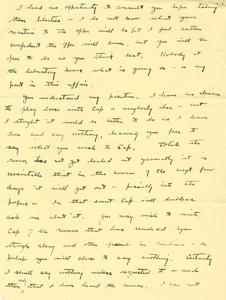 I had no opportunity to consult you before taking
these liberties — I do not know what your
reaction to the offer will be but I feel rather
confident the offer will come, but you will be
free to do as you think best. Nobody at
the laboratory knows what is going on — or my
part in this affair.
You understand my position. I have no desire
to play loose with Cap or anybody else — but
I thought it would be better to do as I have
done and say nothing, leaving you free to
say what you wish to Cap. While the
rumor has not yet leaked out generally it is
inevitable that in the course of the next few
days it will get out — possibly into the
papers — In that event Cap will doubtless
ask me about it. you may wish to write
Cap of the rumor that has reached you
through and other friends in — or
perhaps you will choose to say nothing. Certainly
I shall say nothing unless requested to — and
then only that I have heard the rumor. I can not